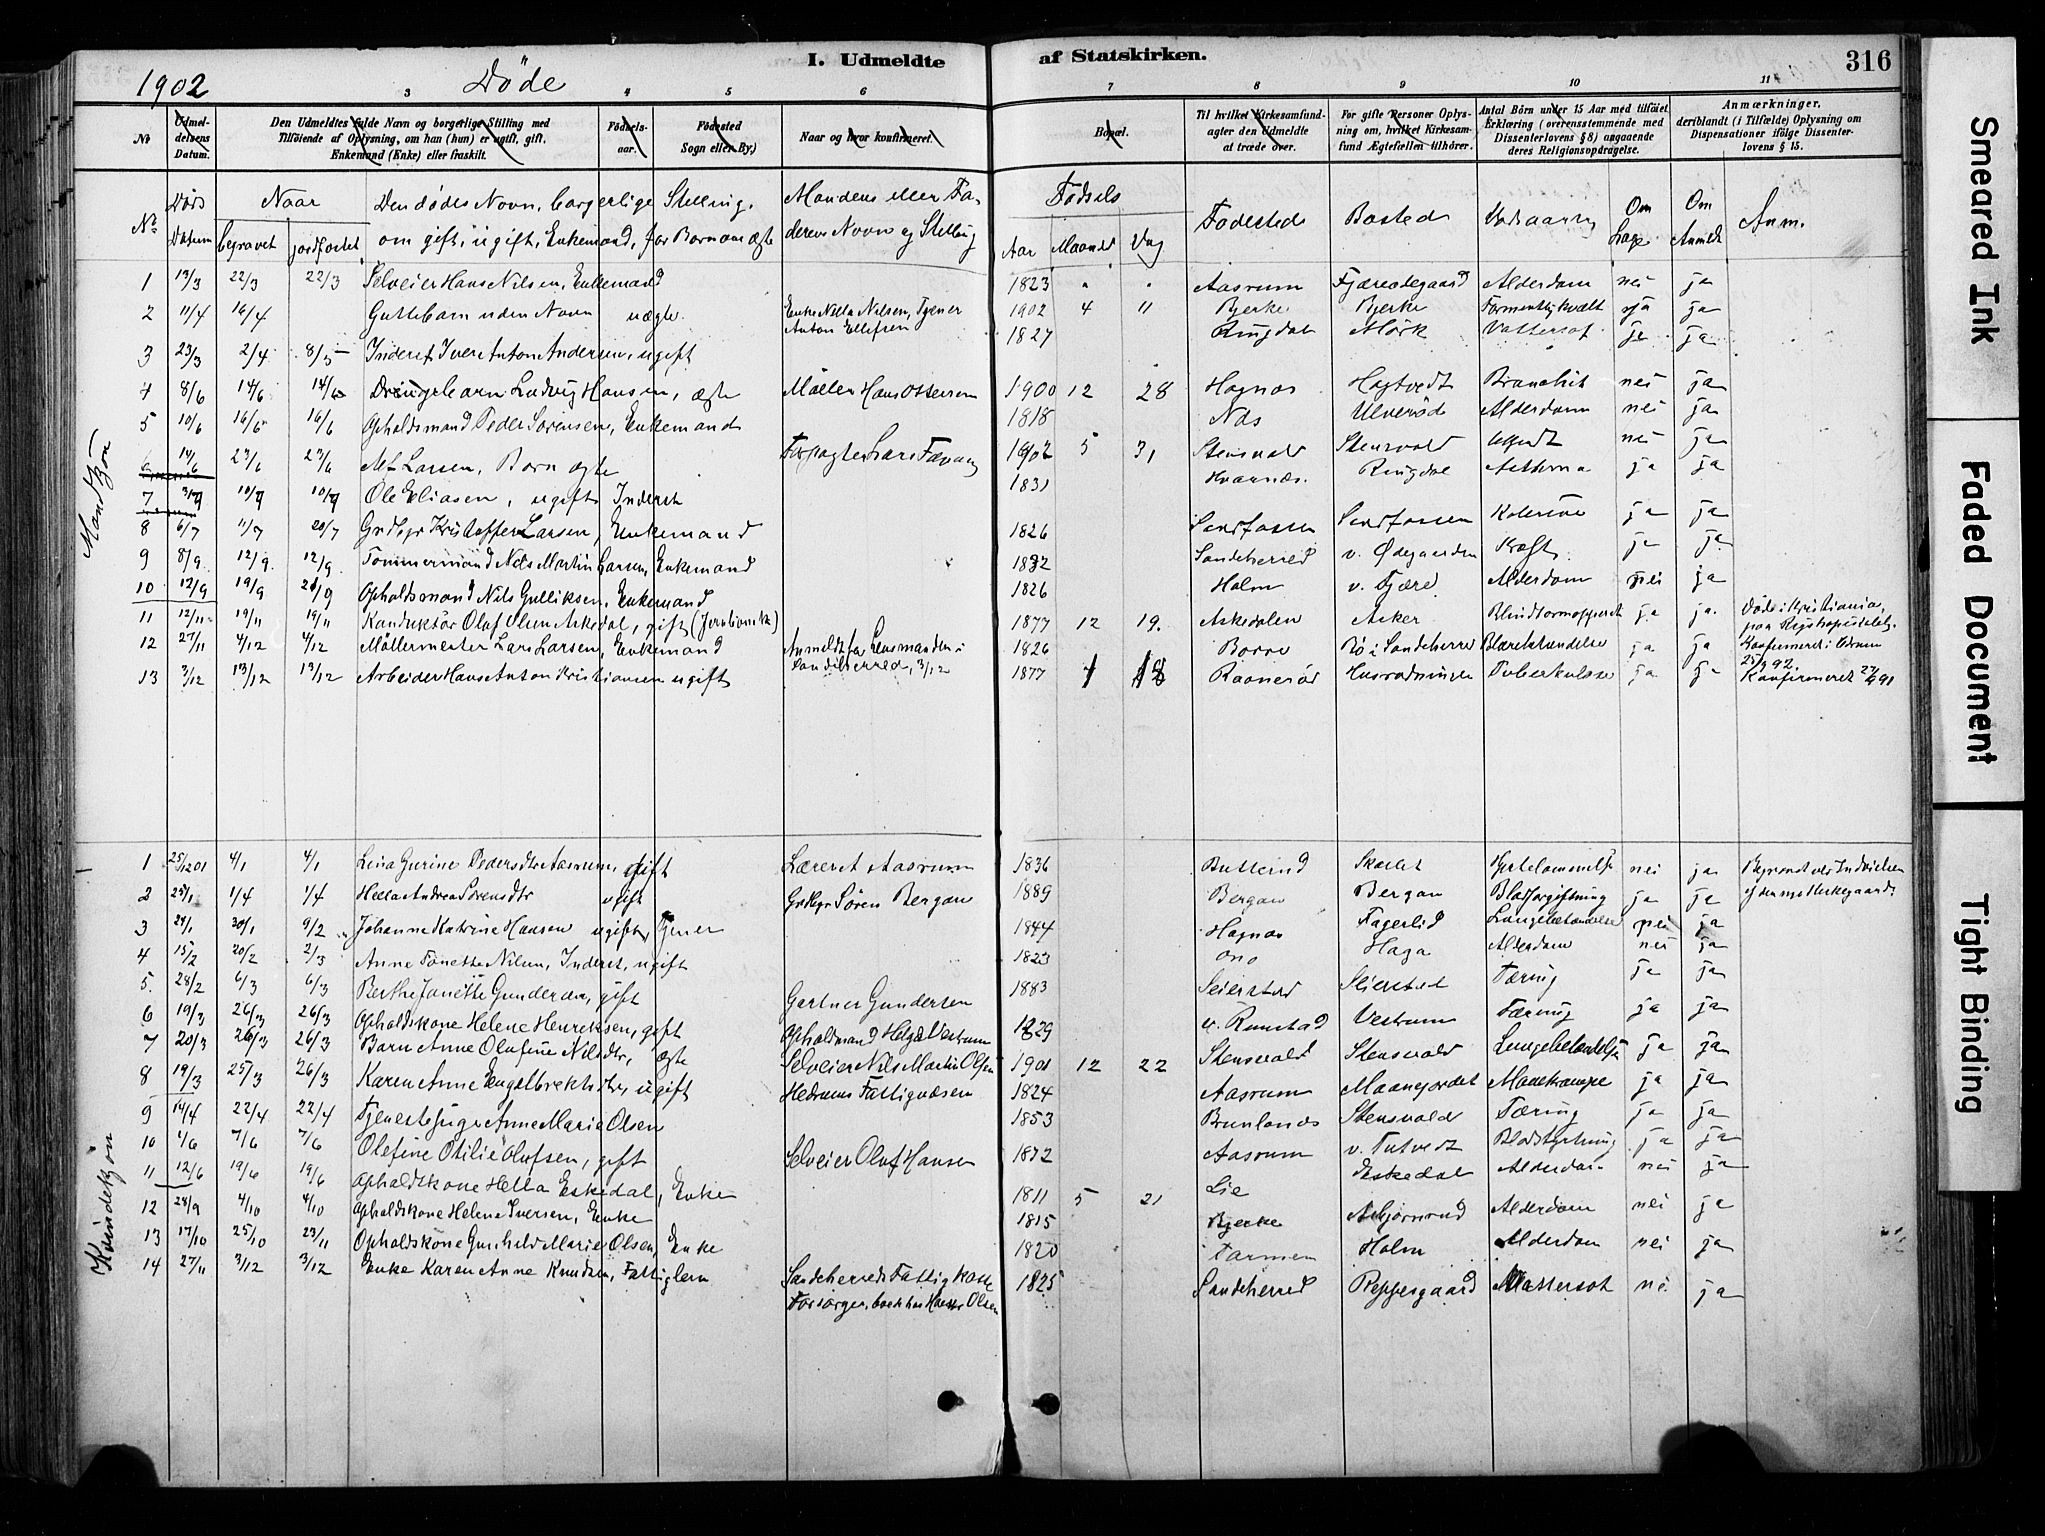 I. Udmeldte af Statskirken.
316
1902 Döde
3 4 5 6 7 8 9 10 11
No
Udmeldelsens Datum.
Den Udmeldtes fulde Navn og borgerlige Stilling med Tilföiende af Oplysning, om han (hun) er ugift, gift, Enkemand (Enke) eller fraskilt.
Födselsaar.
Födested Sogn eller By.)
Naar og hvor konfirmeret.
Bopæl.
Til hvilket Kirkesamfund agter den Udmeldte at træde over.
For gifte Personer Oplysning om, hvilket Kirkesamfund Ægtefællen tilhörer.
Antal Börn under 15 Aar med tilföiet Erklæring (overensstemmende med Dissenterlovens § 8) angaaende deres Religionsopdragelse.
Anmærkninger, deriblandt (i Tilfælde) Oplysning om Dispensationer ifölge Dissenterlovens § 15.
No Döds Datum Naar begravet jordfæstet
Den dödes Navn, borgerlige Stilling, om gift, ugift, Enkemand, for Barn om ægte
Mandens eller Faderens Navn og Stilling
Födsels Aar Maaned Dag
Födested Bosted Dødsaarsag Om Læge Om Anmeldt Anm.
Mandkjön
1 13/3 22/3 22/3 Selveier Hans Nilsen, Enkemand 1823 " " Aasrum Fjæreødegaard Alderdom nei ja
2 11/4 16/4 Guttebarn uden Navn uægte Enke Nilla Nilsen, Tjener Anton Ellefsen 1902 4 11 Bjerke Bjerke Formentlig kvalt ja ja
3 23/3 2/4 8/5 Inderst Iver Anton Andersen, ugift 1827 Ringdal Mörk Vattersot ja ja
4 8/6 14/6 14/6 Drengebarn Ludvig Hansen, ægte Möller Hans Ottersen 1900 12 28 Hagnæs Hagtvedt Bronchit nei ja
5 10/6 16/6 16/6 Opholdsmand Peder Sörensen, Enkemand 1818 Næs Ulveröd Alderdom nei ja
6 14/6 23/6 23/6 Alf Larsen, Barn ægte Forpagter Lars Favang 1902 5 31 Stensvold Stensvold nei ja
7 10/7 10/7 Ole Eliasen, ugift Inderst 1831 Kvarnæs Ringdal Asthma ja ja
8 6/7 11/7 20/7 Grdbgr Kristoffer Larsen, Enkemand 1826 Sandfossen Sandfossen Kolerine ja ja
9 8/9 12/9 12/9 Tömmermand Nils Martin Larsen, Enkemand 1832 Sandeherred v. Ødegaarden Kræft ja ja
10 12/9 19/9 21/9 Opholdsmand Nils Gulliksen, Enkemand 1826 Holm v. Fjære Alderdom nei ja
11 12/11 19/11 19/11 Konduktör Olaf Olsen Askedal, gift 1877 12 19. Askedalen Asker Blindtarmoperert ja ja. Död i Kristiania, paa Rigshospitalet
12 27/11 4/12 4/12 Möllermester Lars Larsen, Enkemand Anmeldt for Lensmanden i Sandeherred, 3/12 1826 Borre Bö i Sandeherred Blærebetændelse ja ja
13 3/12 13/12 13/12 Arbeider Hans Anton Kristiansen ugift 1877 Raaneröd Husrodningen Tuberkulose ja ja Konfirmeret 27/9 91
Kvindekjön
1 25/12 01 4/1 4/1 Lina Gurine Pedersdtr Aasrum, gift Læreret Aasrum 1836 Butterud nei ja
2 25/1 1/4 1/4 Hella Andrea Sorensdtr ugift Grdbgr Sören Bergan 1889 Bergan Bergan Blodforgiftning ja ja
3 24/1 30/1 9/2 Johanne Katrine Hansen ugift, Tjener 1844 Hagnæs Fagerlid Lungebetændelse nei ja
4 15/2 20/2 2/3 Anne Tonette Nilsen, Inderst, ugift 1823 Ono Haga Alderdom nei ja
5. 28/2 6/3 6/3 Berthe Janette Gundersen, gift Gartner Gundersen 1883 Seierstad Seierstad Tæring ja ja
6 19/3 26/3 26/3 Opholdskone Helene Henriksen, gift Opholdmand Helge Vestrum 1829 v. Rimstad Vestrum Tæring ja ja
7 20/3 26/3 26/3 Barn Anne Olufine Nilsdtr, ægte Selveier Nils Martin Olsen 1901 12 22 Stensvold Stensvold Lungebetændelse ja ja
8 19/3 25/3 26/3 Karen Anne Engelbrektsdtr, ugift Hedrums Fattigvæsen 1824 Aasrum Maanejordet Mavekrampe ja ja
9 14/4 22/4 22/4 Tjenestepige Anne Marie Olsen 1853 Brunlanæs Stensvold Tæring ja ja
10 1/6 7/6 7/6 Olefine Otilie Olufsen, gift Selveier Oluf Hansen 1872 Aasrum v. Tutvedt Blodstyrtning ja ja
11 12/6 19/6 19/6 Opholdskone Hella Eskedal, Enke 1811 5 21 Lie Eskedal Alderdom nei ja
12 28/9 4/10 4/10 Opholdskone Helene Iversen, Enke 1815 Bjerke Asbjörnröd Alderdom nei ja
13 17/10 25/10 23/11 Opholdskone Gunhild Marie Olsen, Enke 1820 Farmen Holm Alderdom nei ja
14 27/11 3/12 3/12 Enke Karen Anne Knudsen, Fattiglem Sandeherreds Fattigkasse 1825 Sandeherred Reppesgaard Vattersot nei ja
Smeared Ink
Faded Document
Tight Binding